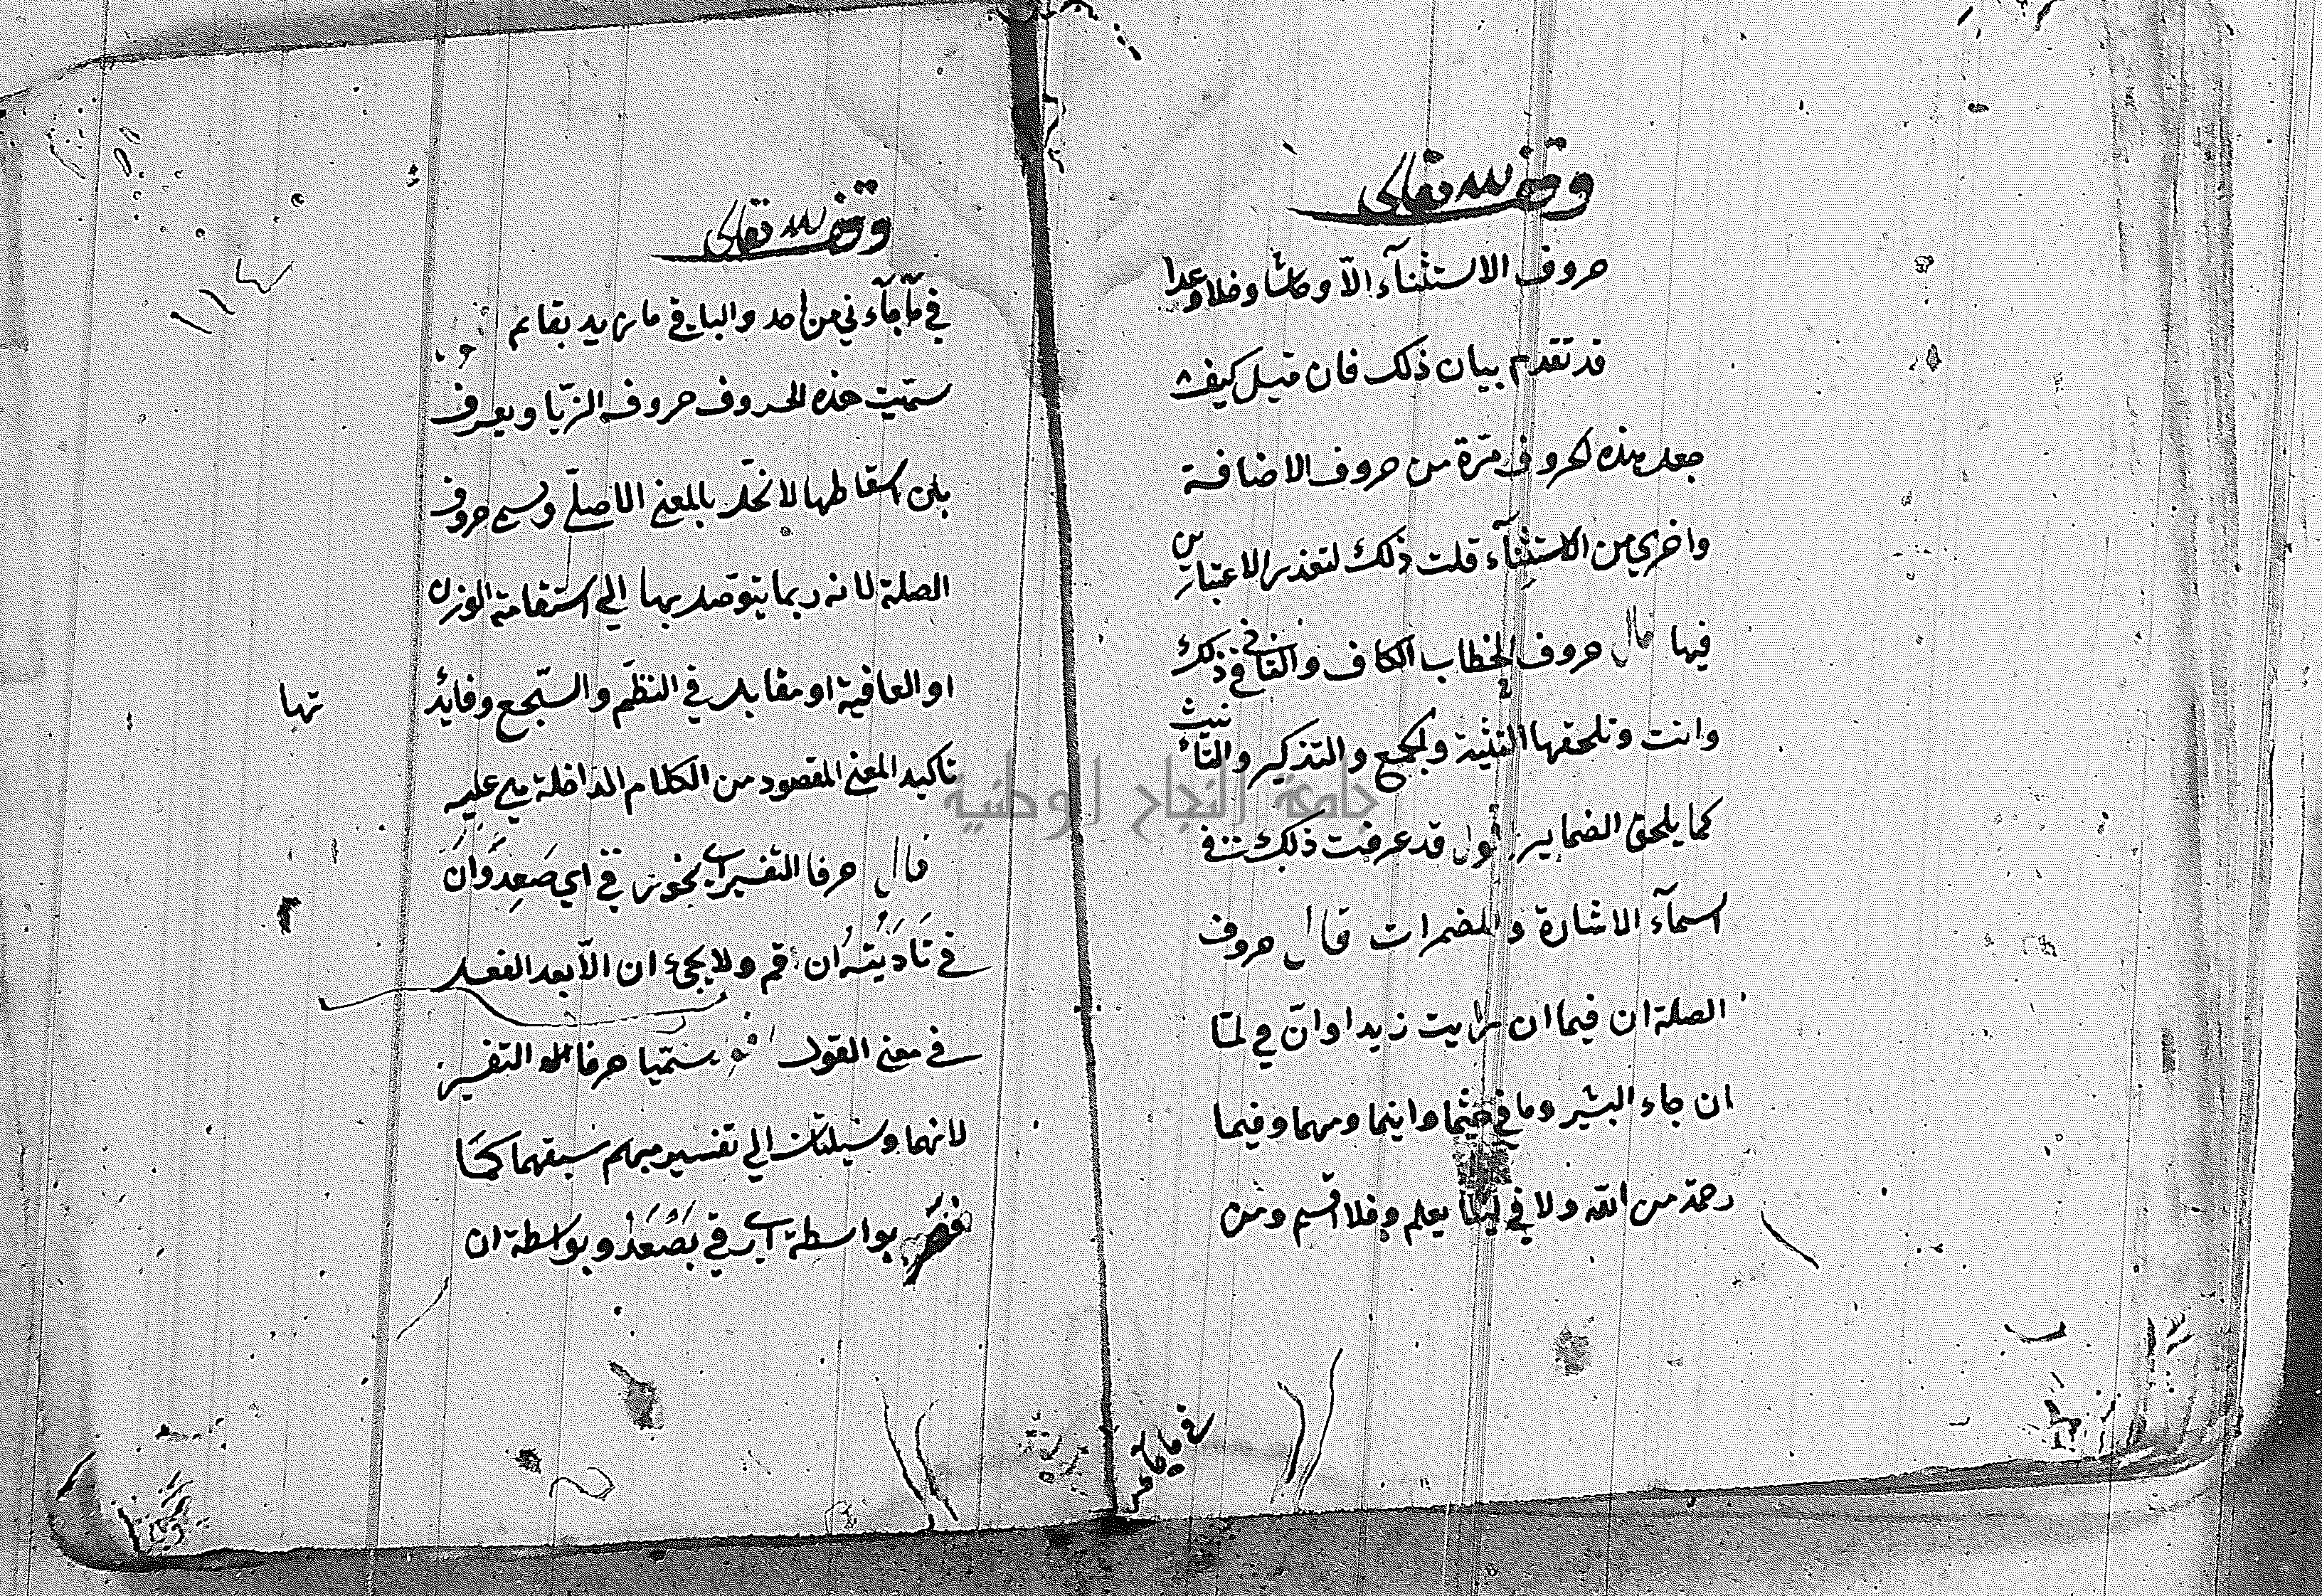 وقف لله تعالى
حروف الاستثنآء الّا وحاشا وخلا وعدا
قد تقدم بيان ذلك فان قيل كيف
جعل هذه الحروف مرّة من حروف الاضافة
واخري من الاستثنآء قلت ذلك لتغذير الاعتبارين
فيها قال حروف الخطاب الكاف والتا في ذلك
وانت وتلحقها التثنية والجمع والتذكير والتأنيث
كما يلحق الضماير اقول قد عرفت ذلك في
اسمآء الاشارة والمضمرات قال حروف
الصلة ان فيما ان رايت زيدا وانّ في لمّا
ان جاء البشير وما في حيثما واينما ومهما وفيما
رحمة من الله ولا في ليلا يعلم وفلا اقسم ومن
في ما جاء
وقف لله تعالى
١١٤
في ما جآءني من احد والبا في ما زيد بقايم
سمّيت هذه الحروف حروف الزيّا ويعرف
بان اسقاطها لا تخلّ بالمعني الاصلّي وسمي حروف
الصلة لانه ربما يتوصل بها الي استقامة الوزن
او العافية او مقابله في النظم والسّجع وفايد تها
تاكيد المعني المقصود من الكلام الداخلة هي عليه
قال حرفا التفسير اي نحو في اي صَعِدَ وَان
في نَادَيْتُهُ ان قم ولا يجئ ان الّا بعد الفعل
في معني القول اقول سمّيا حرفا التفسير
لانهما وسيلتان الي تفسير مبهم سبقهما كما
فسر بواسطة اي رقي بصَعَدَ وبواسطة ان
جامعة النجاح الوطنية